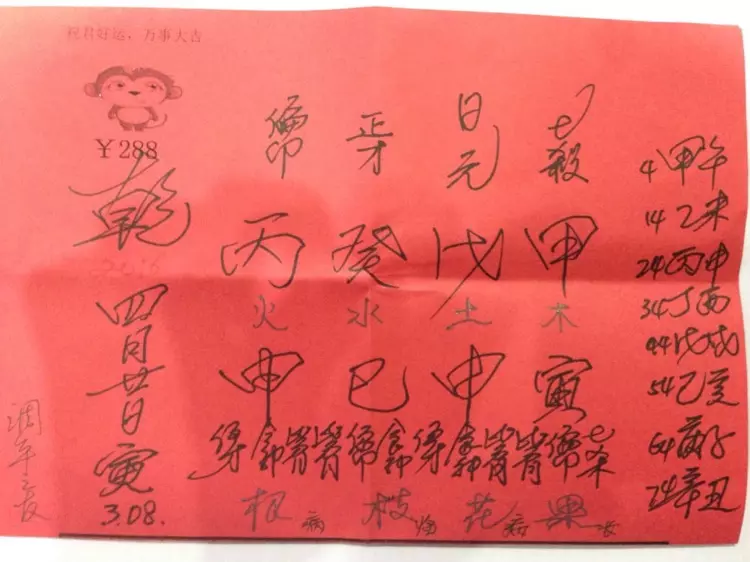 祝君好运，万事大吉
¥288
乾
四月廿日寅
3.08.
偏印 正才 日元 七殺
丙 癸 戊 甲
火 水 土 木
申 巳 申 寅
根 病 枝 花 病 果
4甲午
14乙未
24丙申
34丁酉
44戊戌
54己亥
64庚子
74辛丑